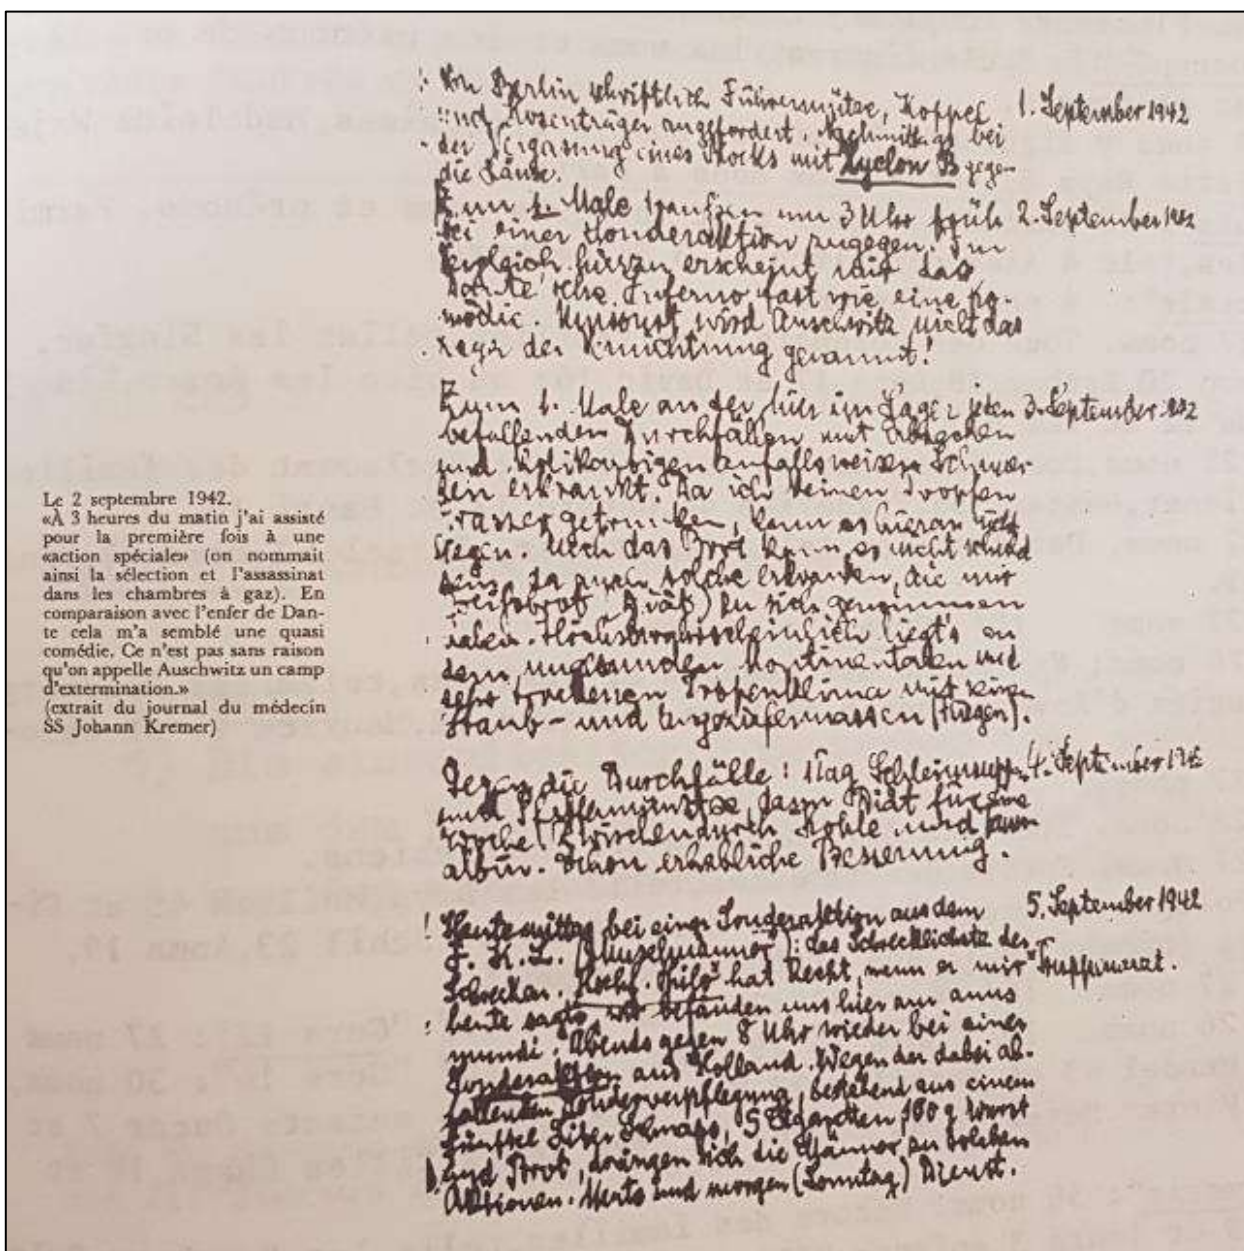 Le 2 septembre 1942.
«À 3 heures du matin j'ai assisté
pour la première fois à une
«action spéciale» (on nommait
ainsi la sélection et l'assassinat
dans les chambres à gaz). En
comparaison avec l'enfer de Dan-
te cela m'a semblé une quasi
comédie. Ce n'est pas sans raison
qu'on appelle Auschwitz un camp
d'extermination.»
(extrait du journal du médecin
SS Johann Kremer)
Berlin schriftlich Führermütze, Koppel 1. September 1942
und Hosenträger angefordert. Nachmittags bei
der Vergasung eines Blocks mit Zyklon B gegen
die Läuse.
Zum 1. Male draußen um 3 Uhr früh 2. September 1942
bei einer Sonderaktion zugegen. Im
Vergleich hierzu erscheint mir das
Dante'sche Inferno fast wie eine Ko-
mödie. Umsonst wird Auschwitz nicht das
Lager der Vernichtung genannt!
Zum 1. Male an der hier im Lager jeden 3. September 1942
befallenden Durchfällen mit Erbrechen
und kolikartigen anfallsweisen Schmer-
zen erkrankt. Da ich keinen Tropfen
Wasser getrunken, kann es hieran nicht
liegen. Auch das Brot kann es nicht schuld
sein, da auch solche erkranken, die nur
Weißbrot (Diät) zu sich genommen
haben. Höchstwahrscheinlich liegt's an
dem ungesunden kontinentalen und
sehr trockenen Tropenklima mit seinen
Staub- und Ungeziefermassen (Fliegen).
Gegen die Durchfälle: 1 Tag Schleimsuppen 4. September 1942
und Pfefferminztee, dann Diät für eine
Woche. Zwischendurch Kohle und Tann-
albin. Schon erhebliche Besserung.
Heute mittag bei einer Sonderaktion aus dem 5. September 1942
F.K.L. (Muselmänner): das Schrecklichste der
Schrecken. Hschf. Thilo hat Recht, wenn er mir Truppenarzt.
heute sagte, wir befänden uns hier am anus
mundi. Abends gegen 8 Uhr wieder bei einer
Sonderaktion aus Holland. Wegen der dabei ab-
fallenden Sonderverpflegung, bestehend aus einem
fünftel Liter Schnaps, 5 Zigaretten, 100 g Wurst
und Brot, drängen sich die Männer zu solchen
Aktionen. Heute und morgen (Sonntag) Dienst.